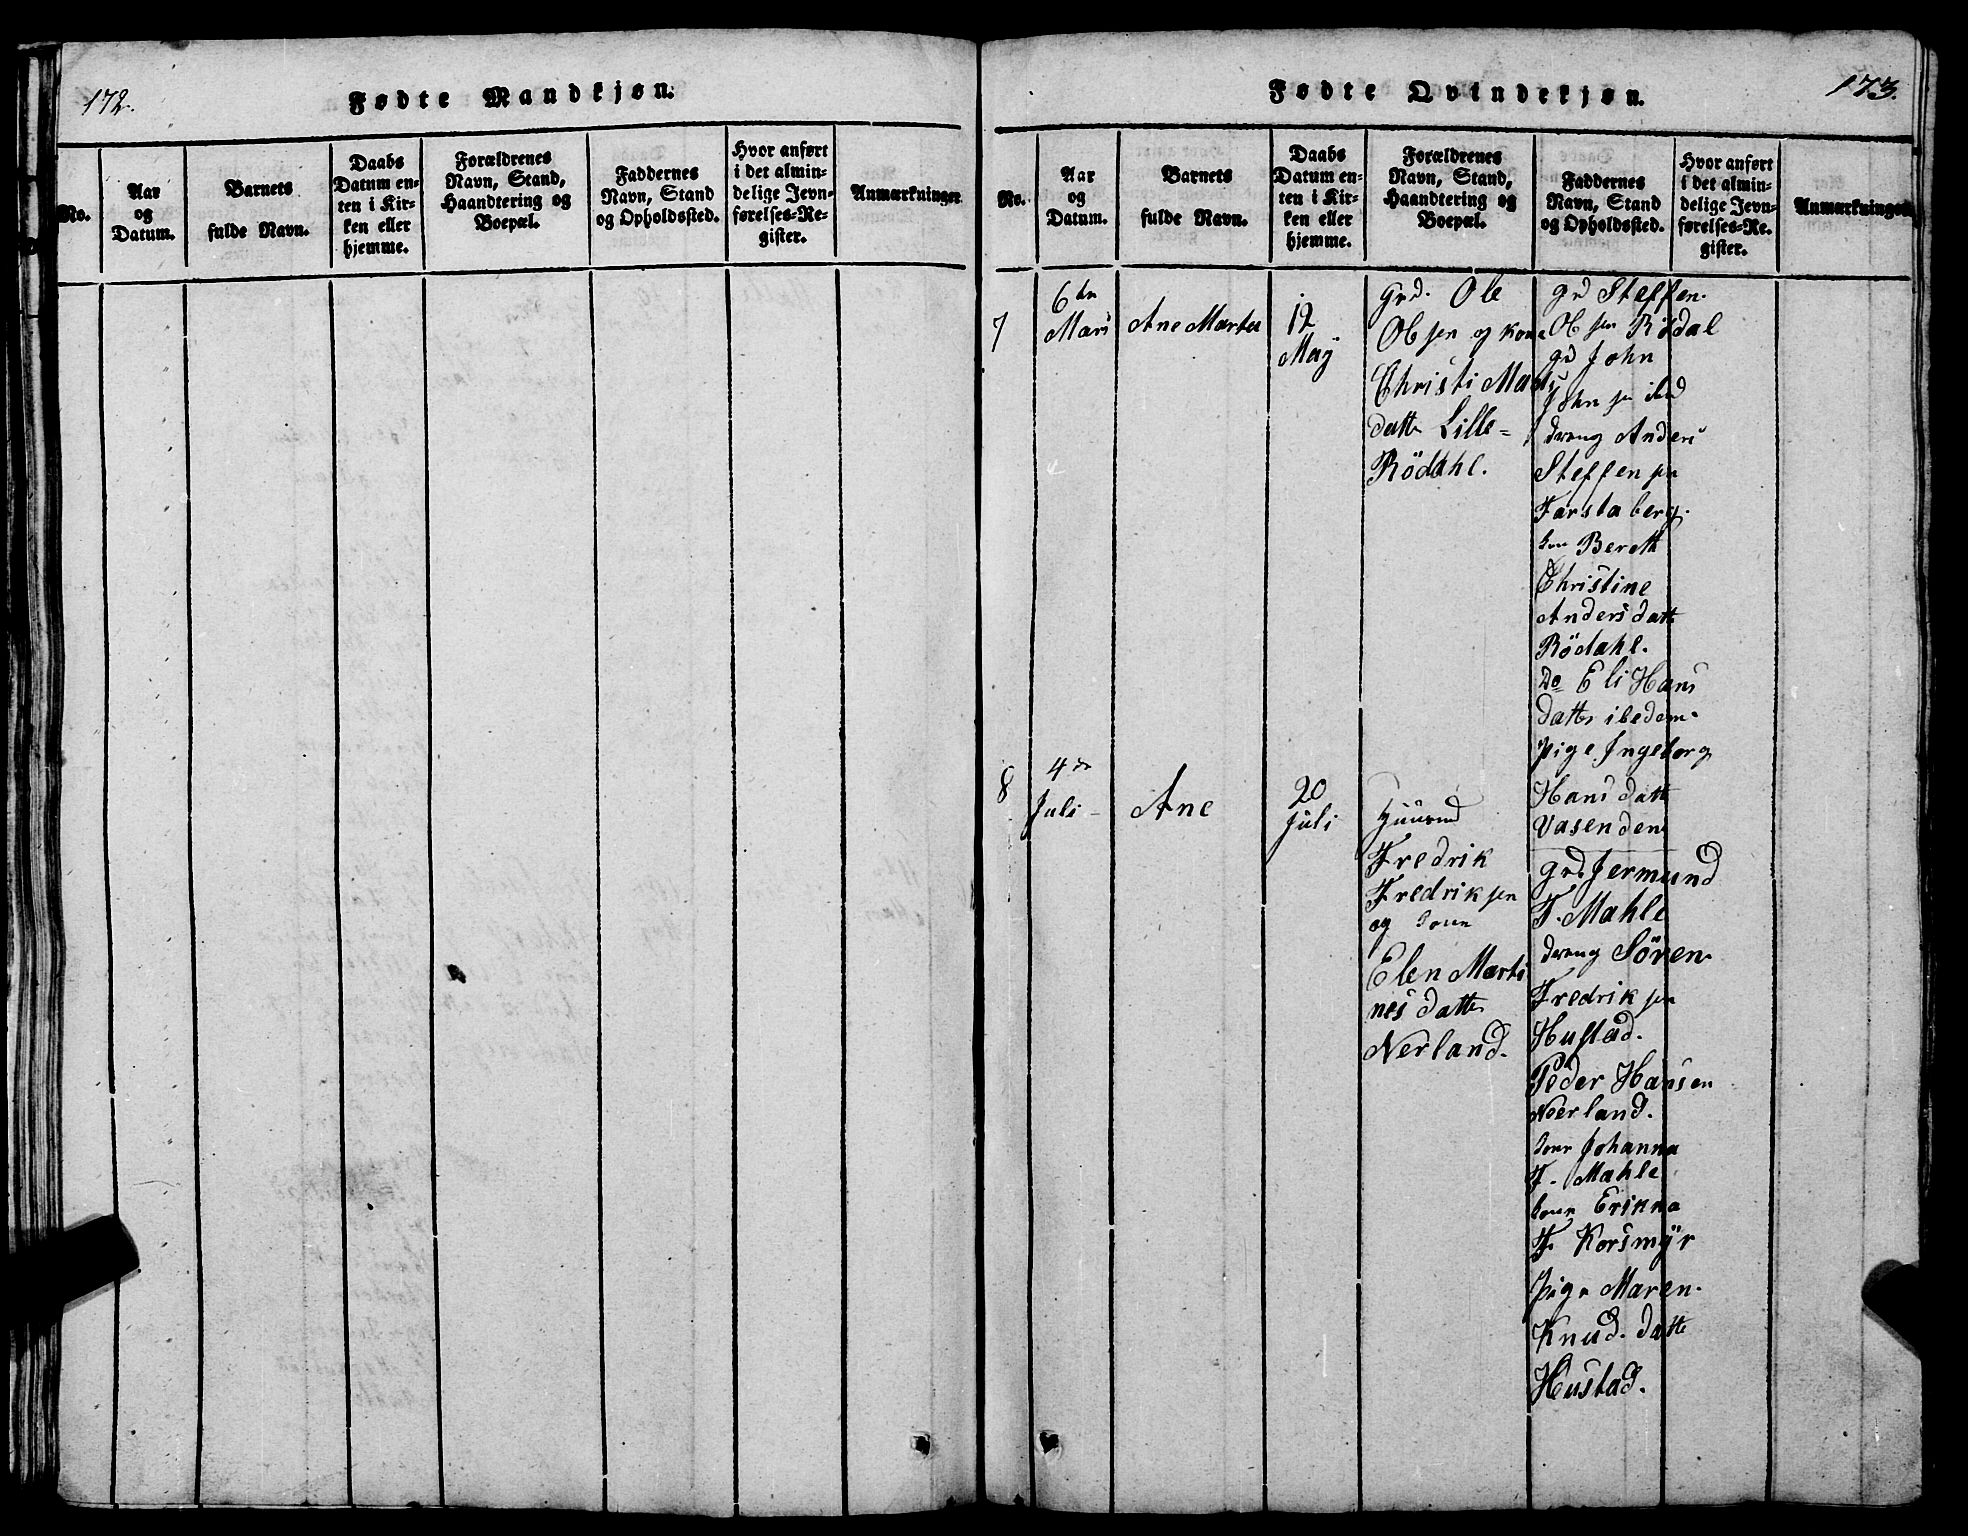 172.
Fødte Mandkjøn.
No.
Aar
og
Datum.
Barnets
fulde Navn.
Daabs
Datum en-
ten i Kir-
ken eller
hjemme.
Forældrenes
Navn, Stand,
Haandtering og
Boepæl.
Faddernes
Navn, Stand
og Opholdssted.
Hvor anført
i det almin-
delige Jevn-
førelses-Re-
gister.
Anmærkninger
Fødte Qvindekjøn.
173.
No.
Aar
og
Datum.
Barnets
fulde Navn.
Daabs
Datum en-
ten i Kir-
ken eller
hjemme.
Forældrenes
Navn, Stand,
Haandtering og
Boepæl.
Faddernes
Navn, Stand
og Opholdssted.
Hvor anført
i det almin-
delige Jevn-
førelses-Re-
gister.
Anmærkninger
7
6te
Mars
Ane Marta
12
May
Grd. Ole
Olsen og kone
Christi Mads
datte Lille-
Rödahl.
gd Steffen
Olsen Rödal
gd John
Johnsen ibd
dreng Anders
Steffensen
Farstaberg.
kone Bereth
Christine
Andersdatte
Rödahl.
Do Eli Hans
datte ibedem.
pige Ingeborg
Hansdatte
Vasenden
8
4de
Juli
Ane
20
Juli
Huusmd
Fredrik
Fredriksen
og kone
Elen Marti
nes datte
Nerland.
grd Jermund
F. Mahle
dreng Sören
Fredriksen
Hustad.
Peder Hansen
Neerland.
kone Johanna
F. Mahle
kone Erikna
F. Korsmÿr
pige Maren
Knud.datte
Hustad.